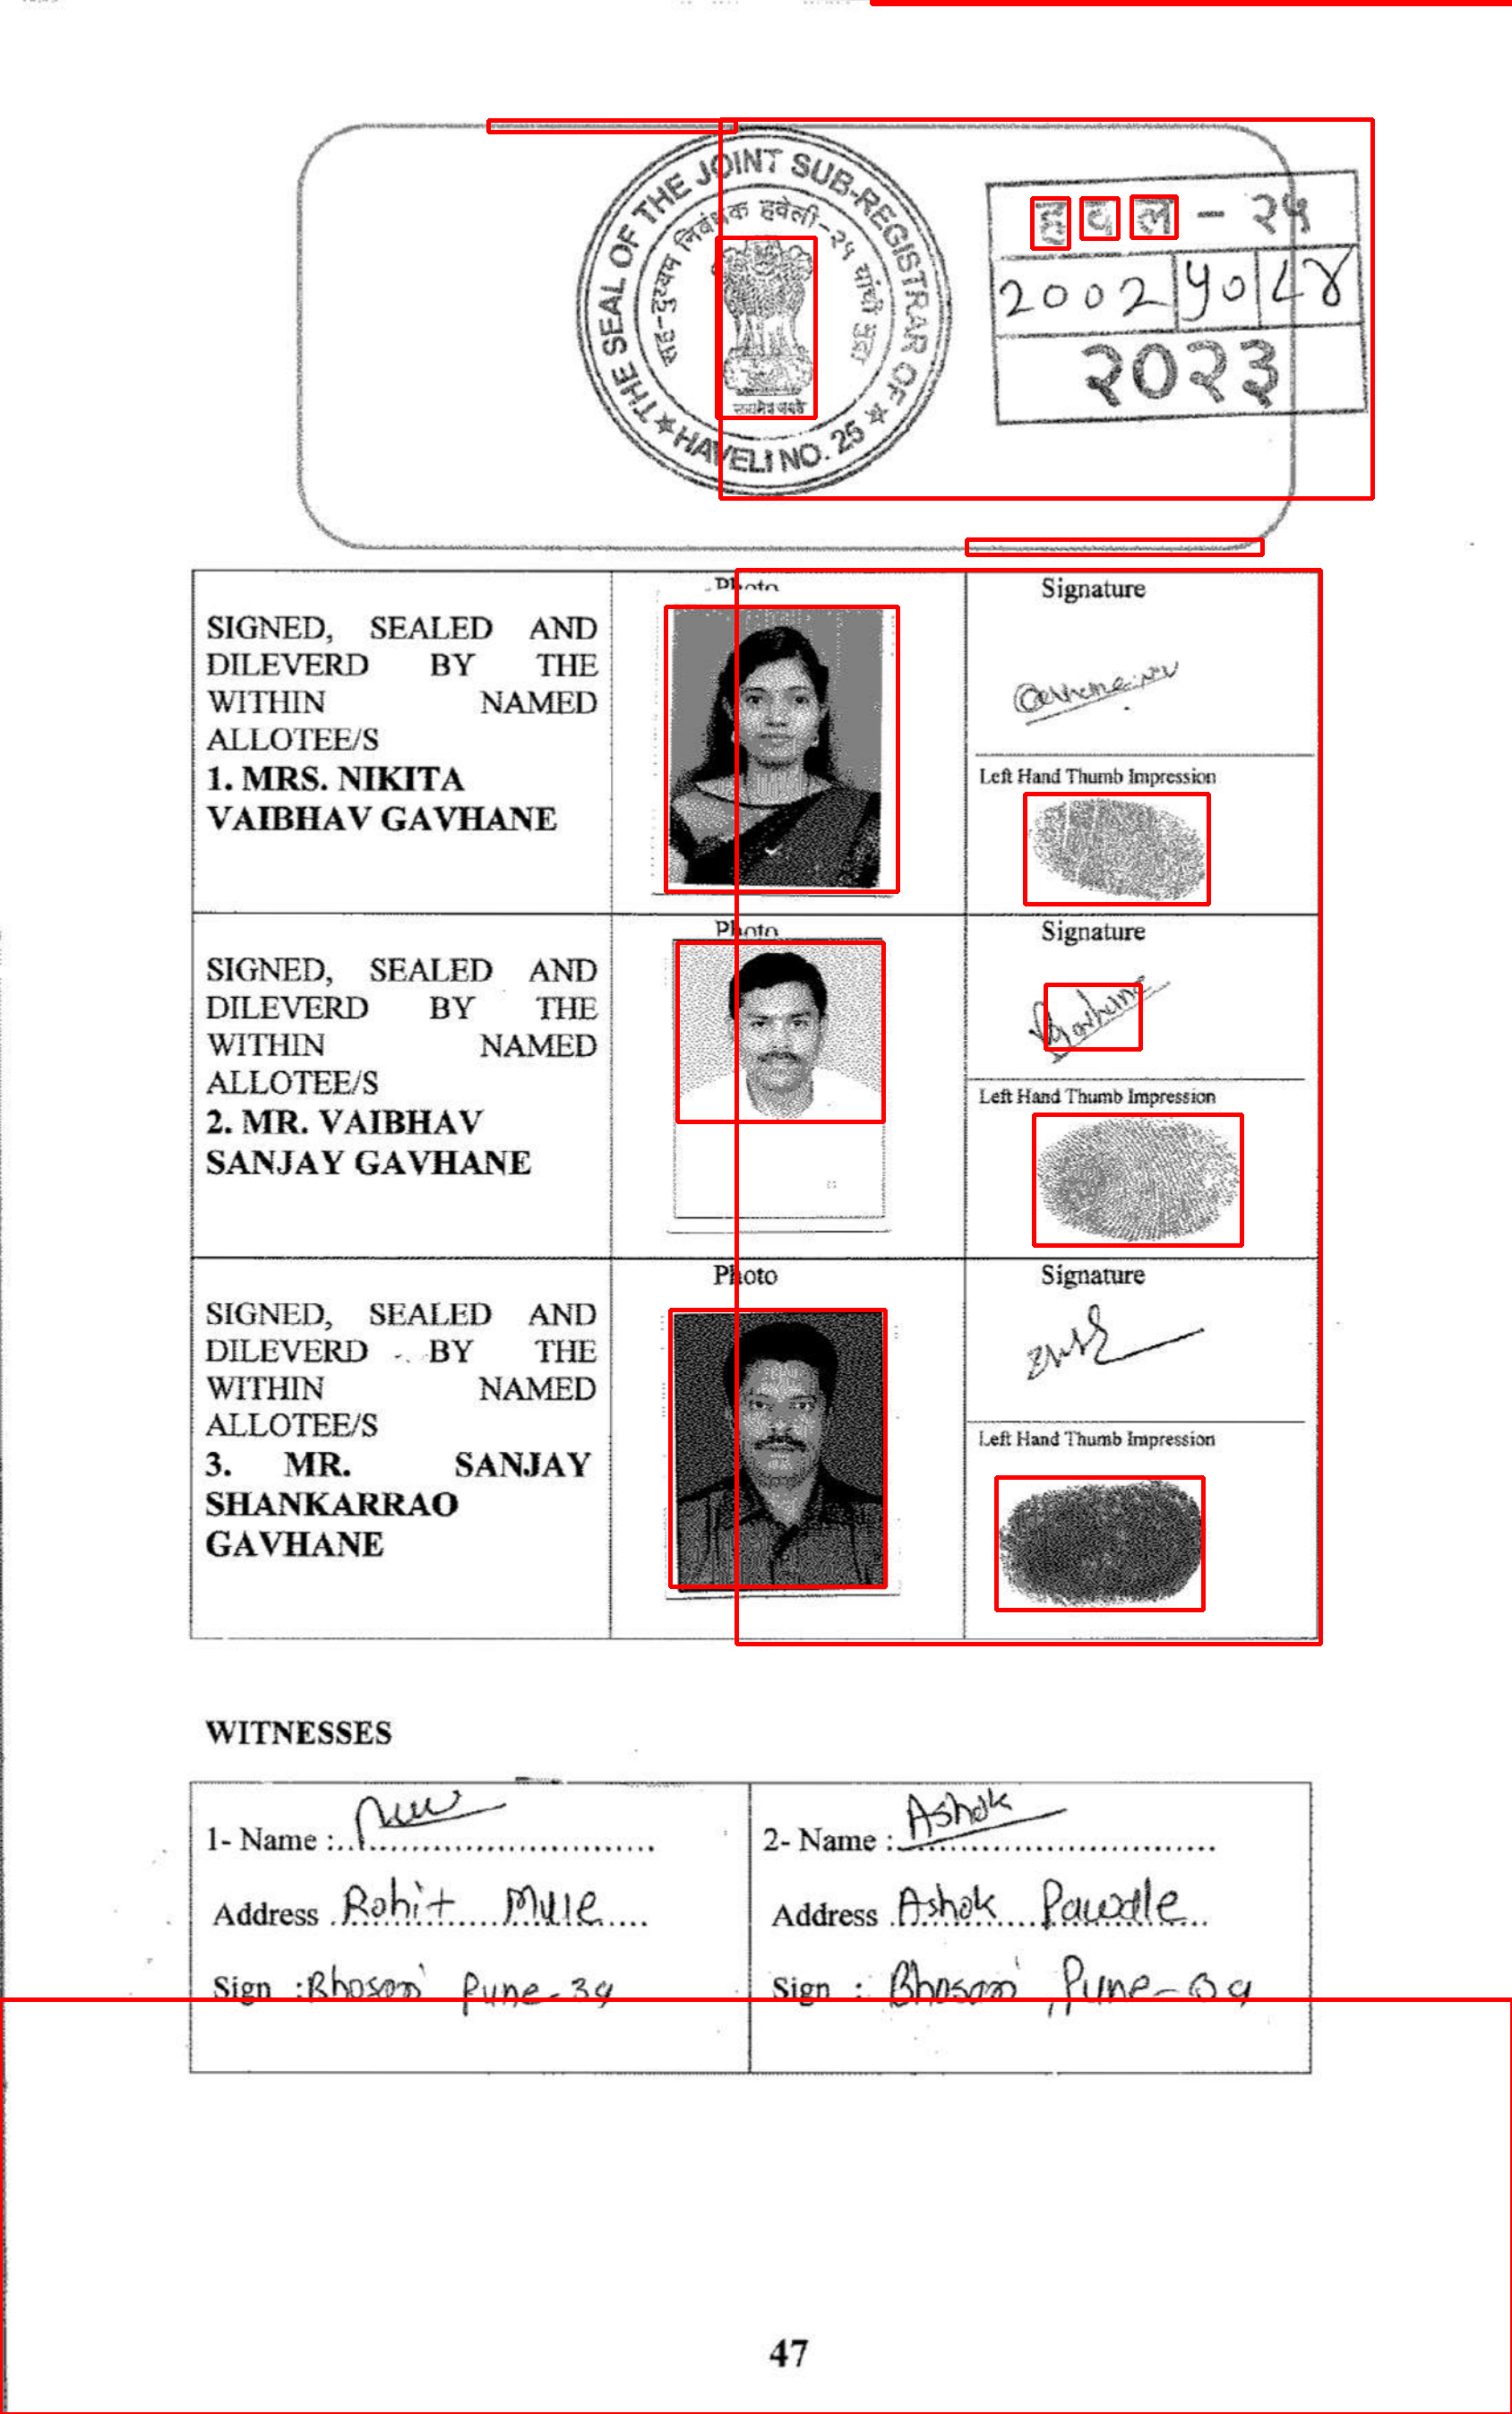 THE SEAL OF THE JOINT SUB-REGISTRAR OF
★ HAVELI NO. 25 ★
सह-दुय्यम निबंधक हवेली-२५ यांची मुद्रा
सत्यमेव जयते
हवल - २५
2002 | 50 | ८४
२०२३
SIGNED, SEALED AND
DILEVERD BY THE
WITHIN NAMED
ALLOTEE/S
1. MRS. NIKITA
VAIBHAV GAVHANE
Photo
Signature
Left Hand Thumb Impression
SIGNED, SEALED AND
DILEVERD BY THE
WITHIN NAMED
ALLOTEE/S
2. MR. VAIBHAV
SANJAY GAVHANE
Photo
Signature
Gavhane
Left Hand Thumb Impression
SIGNED, SEALED AND
DILEVERD BY THE
WITHIN NAMED
ALLOTEE/S
3. MR. SANJAY
SHANKARRAO
GAVHANE
Photo
Signature
Left Hand Thumb Impression
WITNESSES
1- Name :
Address Rohit Mule
Sign : Bhosari Pune-39
2- Name : Ashok
Address Ashok Pawdle
Sign : Bhosari, Pune-09
47